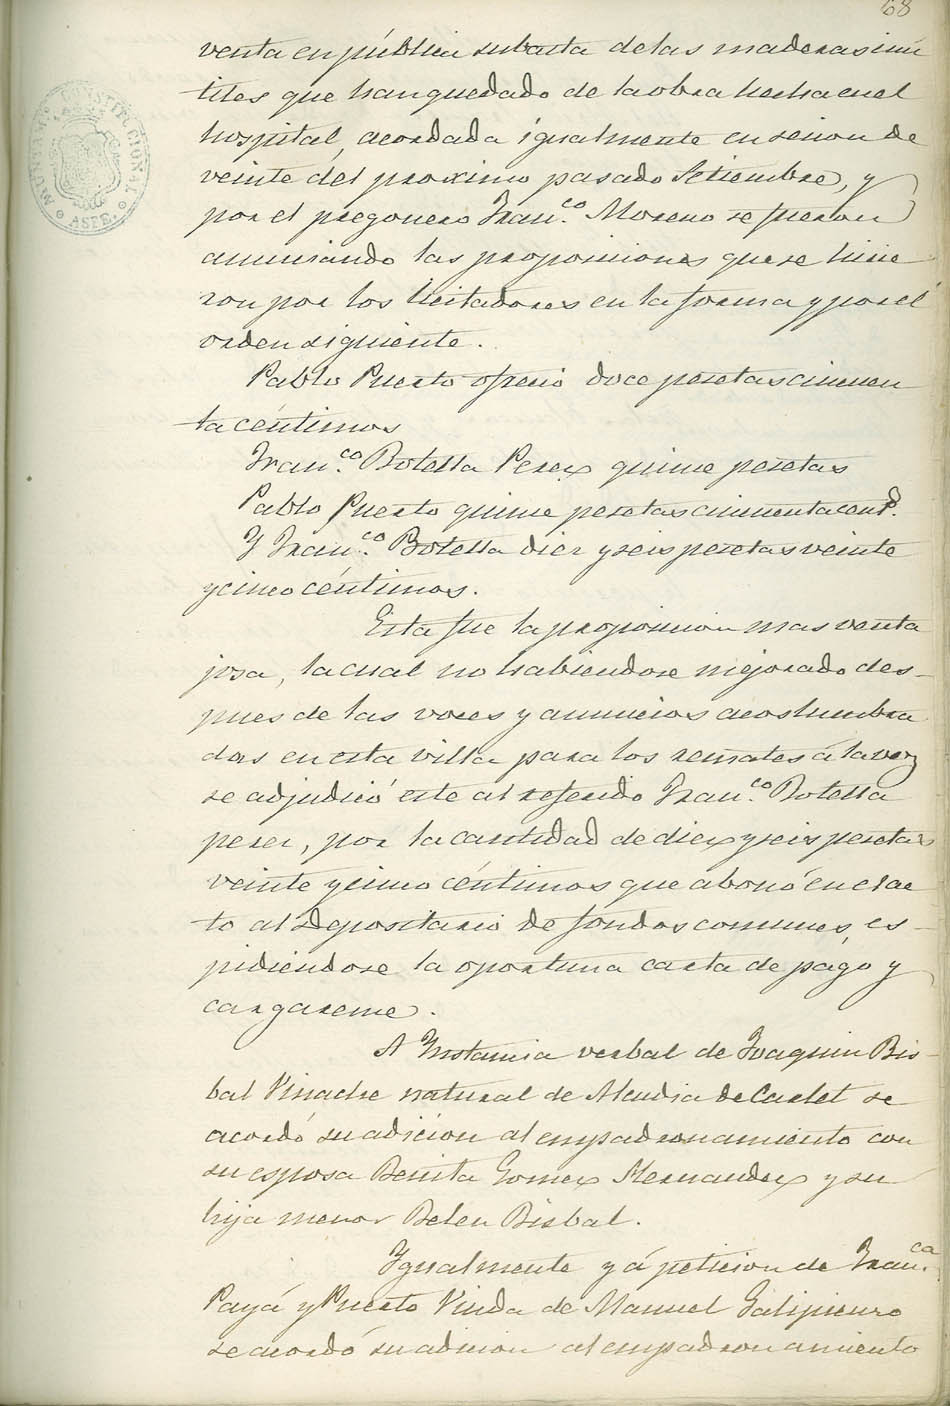 68
MUNTAM.º CONSTITUCIONAL
ASPE.
venta en pública subasta de las maderas inu
tiles que han quedado de la obra hecha en el
hospital, acordada igualmente en sesion de
veinte del proximo pasado Setiembre, y
por el pregonero Fran.co Moreno se fueron
anunciando las proposiciones que se hicie
ron por los licitadores en la forma y por el
orden siguiente.
Pablo Puerto ofrecio doce pesetas cincuen
ta céntimos
Fran.co Botella Perez quince pesetas
Pablo Puerto quince pesetas cincuenta cent.s
Y Fran.co Botella diez y seis pesetas veinte
y cinco céntimos.
Esta fue la proposicion mas venta
josa, la cual no habiendose mejorado des-
pues de las voces y anuncios acostumbra
dos en esta villa para los remates á la vez
se adjudicó este al referido Fran.co Botella
perez, por la cantidad de diez y seis pesetas
veinte y cinco céntimos que abonó en el ac
to al depositario de fondos comunes, es-
pidiéndose la oportuna carta de pago y
cargareme.
A Instancia verbal de Joaquin Bis-
bal Vinache natural de Alcudia de Carlet se
acordó su adicion al empadronamiento con
su esposa Benita Gomez Hernandez y su
hija menor Belen Bisbal.
Ygualmente y á peticion de Fran.ca
Payá y Puerto Viuda de Manuel Galipienso
se acordó su adicion al empadronamiento